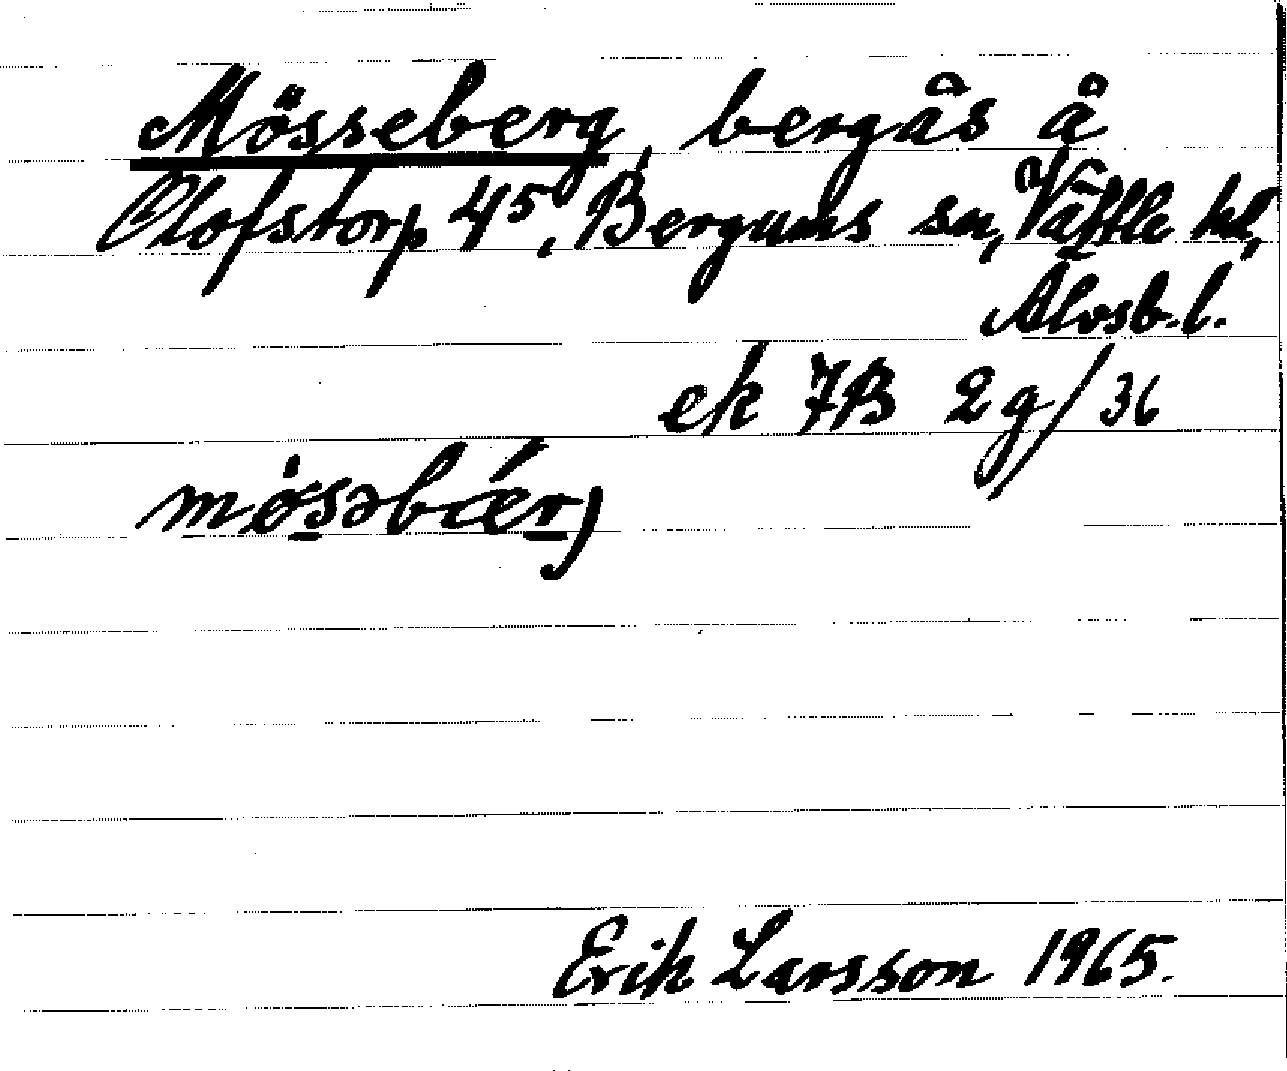 Mösseberg, bergås å
Olofstorp 4⁵, Bergums sn, Vättle hd,
Älvsb. l.
ek 7B 2g/36
mösəbær)
Erik Larsson 1965.